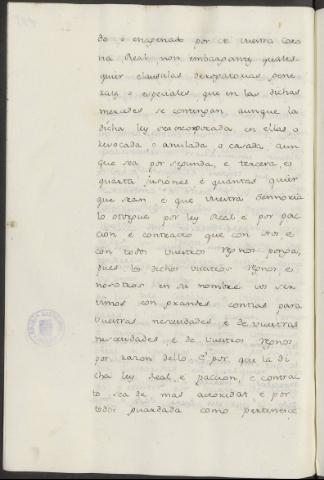 do o enagenado por de vuestra Coro
na Real, non embargantes quales
quier clausulas derogatorias gene
rales o especiales, que en las dichas
mercedes se contengan, aunque la
dicha ley sea incorporada en ellas o
revocada o anulada o casada, aun
que sea por segunda, e tercera, e
quarta jusiones e quantas quier
que sean e que vuestra Sennoria
lo otorgue por ley Real e por pac
cion e contracto que con nos e
con todos vuestros regnos ponga,
pues los dichos vuestros regnos e
nosotros en su nombre vos ser
vimos con grandes contias para
vuestras necesidades e de vuestras
necesidades e de vuestros regnos
por razon dello. E por que la di
cha ley Real e paccion, e contrac
to sea de mas autoridat e por
todos guardada como pertenesce